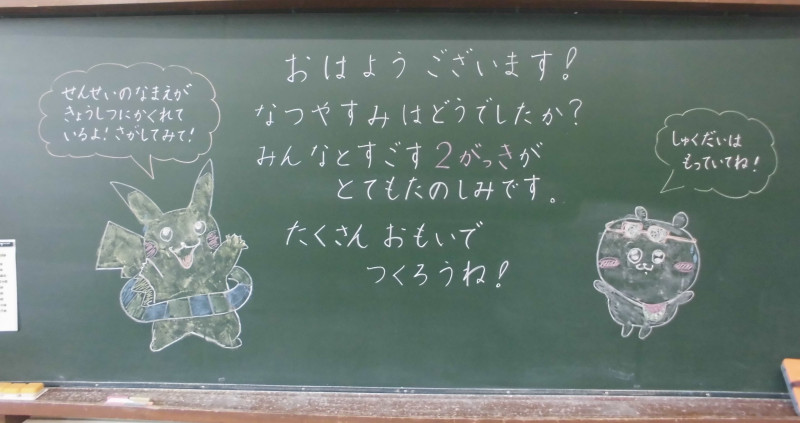 おはようございます!
なつやすみはどうでしたか?
みんなとすごす2がっきが
とてもたのしみです。
たくさんおもいで
つくろうね!
せんせいのなまえが
きょうしつにかくれて
いるよ!さがしてみて!
しゅくだいは
もっていてね!